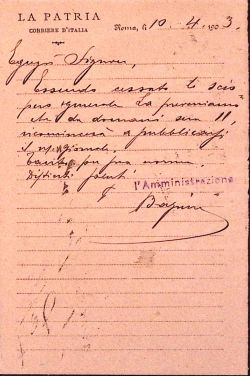 LA PATRIA
CORRIERE D'ITALIA
Roma, li 10 - 4 - 1903
Egregio Signore,
Essendo cessato lo scio-
pero generale La preveniamo
che da domani sera 11,
ricomincerà a pubblicarsi
il ns/ giornale.
Tanto per sua norma.
Distinti saluti
l'Amministrazione